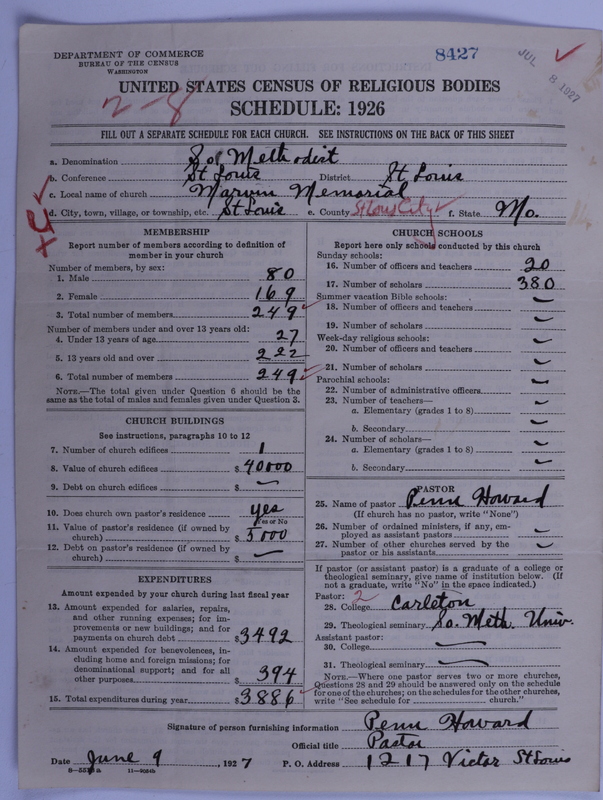 DEPARTMENT OF COMMERCE
BUREAU OF THE CENSUS
WASHINGTON
8427
JUL 8 1927
UNITED STATES CENSUS OF RELIGIOUS BODIES
2-8
SCHEDULE: 1926
FILL OUT A SEPARATE SCHEDULE FOR EACH CHURCH. SEE INSTRUCTIONS ON THE BACK OF THIS SHEET
a. Denomination So Methodist
b. Conference St Louis District St Louis
c. Local name of church Marvin Memorial
d. City, town, village, or township, etc. St Louis e. County St Louis City f. State Mo.
MEMBERSHIP
Report number of members according to definition of
member in your church
Number of members, by sex:
1. Male 80
2. Female 169
3. Total number of members 249
Number of members under and over 13 years old:
4. Under 13 years of age 27
5. 13 years old and over 222
6. Total number of members 249
NOTE.—The total given under Question 6 should be
same as the total of males and females given under Question 3.
CHURCH BUILDINGS
See instructions, paragraphs 10 to 12
7. Number of church edifices 1
8. Value of church edifices $40000
9. Debt on church edifices $ —
10. Does church own pastor's residence yes
Yes or No
11. Value of pastor's residence (if owned by
church) $5000
12. Debt on pastor's residence (if owned by
church) $ —
EXPENDITURES
Amount expended by your church during last fiscal year
13. Amount expended for salaries, repairs,
and other running expenses; for im-
provements or new buildings; and for
payments on church debt $3492
14. Amount expended for benevolences, in-
cluding home and foreign missions; for
denominational support; and for all
other purposes $394
15. Total expenditures during year $3886
CHURCH SCHOOLS
Report here only schools conducted by this church
Sunday schools:
16. Number of officers and teachers 20
17. Number of scholars 380
Summer vacation Bible schools:
18. Number of officers and teachers —
19. Number of scholars —
Week-day religious schools:
20. Number of officers and teachers —
21. Number of scholars —
Parochial schools: —
22. Number of administrative officers —
23. Number of teachers—
a. Elementary (grades 1 to 8) —
b. Secondary —
24. Number of scholars—
a. Elementary (grades 1 to 8) —
b. Secondary —
PASTOR
25. Name of pastor Penn Howard
(If church has no pastor, write "None")
26. Number of ordained ministers, if any, em-
ployed as assistant pastors —
27. Number of other churches served by the
pastor or his assistants —
If pastor (or assistant pastor) is a graduate of a college or
theological seminary, give name of institution below. (If
not a graduate, write "No" in the space indicated.)
Pastor: 2
28. College Carleton
29. Theological seminary So. Meth. Univ.
Assistant pastor:
30. College —
31. Theological seminary —
NOTE.—Where one pastor serves two or more churches,
Questions 28 and 29 should be answered only on the schedule
for one of the churches; on the schedules for the other churches,
write "See schedule for ........ church."
Signature of person furnishing information Penn Howard
Official title Pastor
Date June 9, 1927 P. O. Address 1217 Victor St Louis